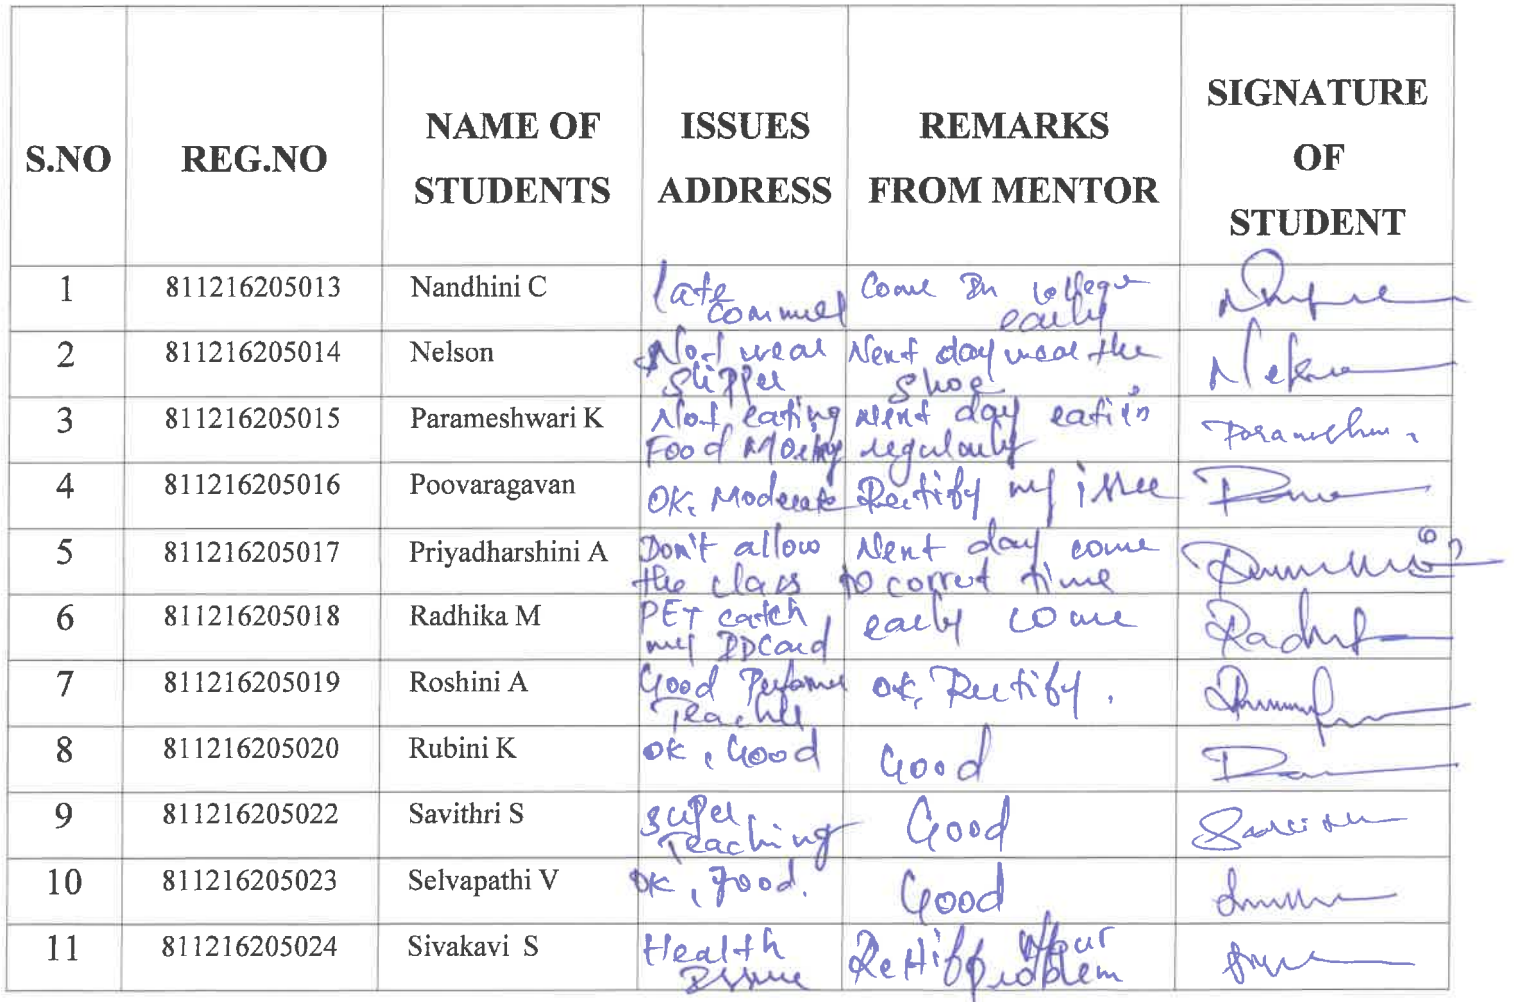 S.NO REG.NO NAME OF STUDENTS ISSUES ADDRESS REMARKS FROM MENTOR SIGNATURE OF STUDENT
1 811216205013 Nandhini C late Come In college early
2 811216205014 Nelson Not wear slipper Next day wear the shoe
3 811216205015 Parameshwari K Not eating Food Next day regularly
4 811216205016 Poovaragavan OK, Moderate Rectify my issue
5 811216205017 Priyadharshini A Don't allow the class Next day come to corret time
6 811216205018 Radhika M PET catch my early come
7 811216205019 Roshini A Good ok, Rectify.
8 811216205020 Rubini K ok, Good Good
9 811216205022 Savithri S super Teaching Good
10 811216205023 Selvapathi V ok, good. Good
11 811216205024 Sivakavi S Health Issue your problem